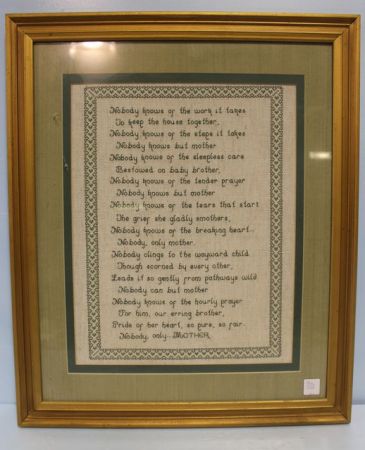 Nobody knows of the work it takes
To keep the house together,
Nobody knows of the steps it takes
Nobody knows but mother
Nobody knows of the sleepless care
Bestowed on baby brother,
Nobody knows of the tender prayer
Nobody knows but mother
Nobody knows of the tears that start
The grief she gladly smothers,
Nobody knows of the breaking heart..
Nobody, only mother.
Nobody clings to the wayward child
Though scorned by every other,
Leads it so gently from pathways wild
Nobody can but mother
Nobody knows of the hourly prayer
For him, our erring brother,
Pride of her heart, so pure, so fair
Nobody, only MOTHER